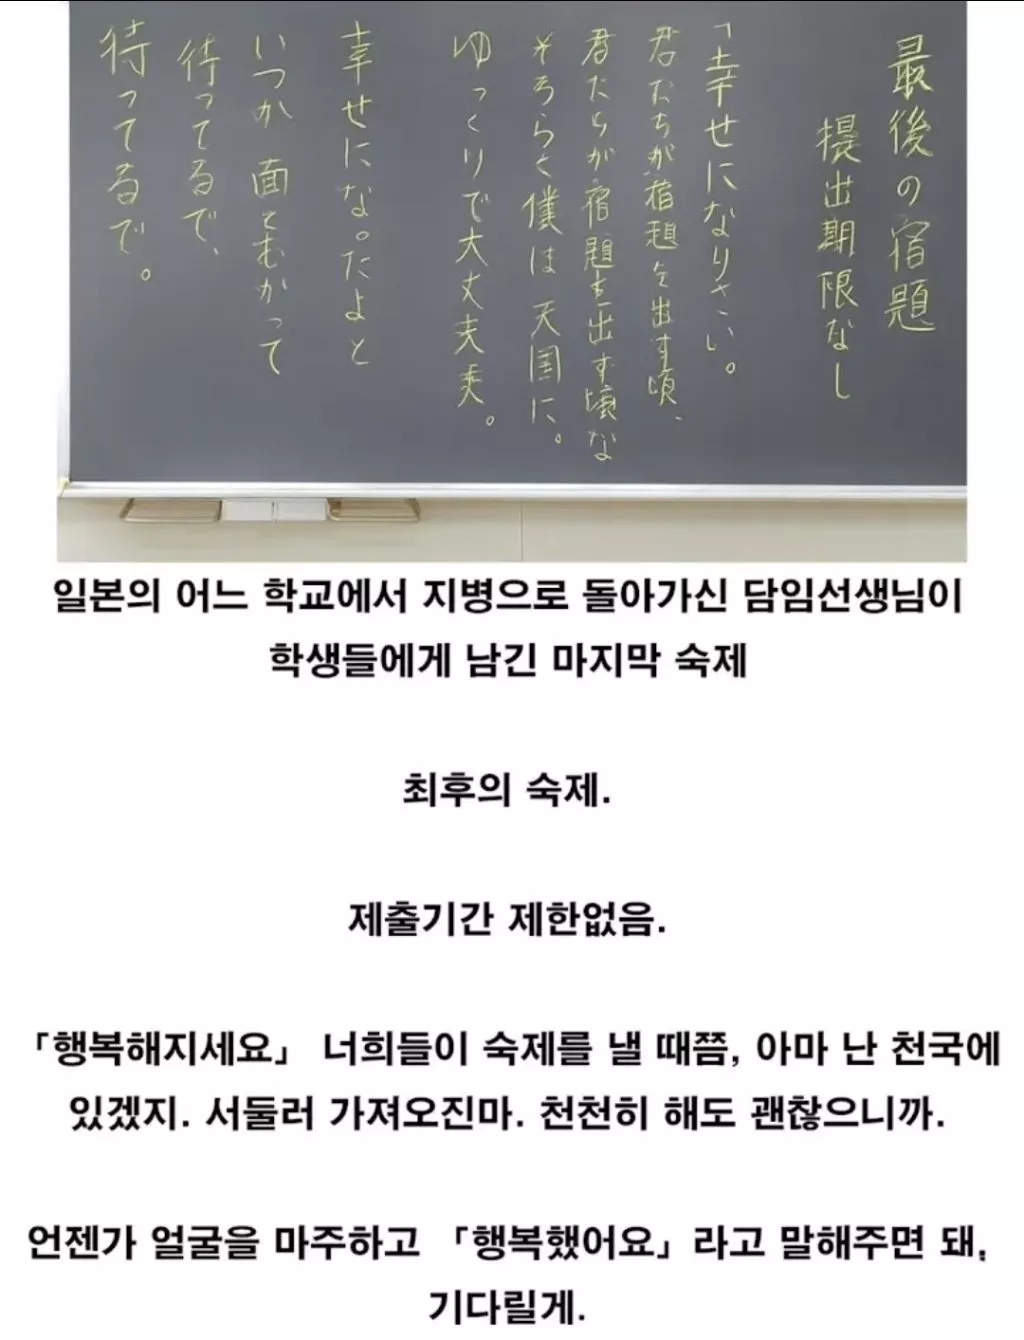 最後の宿題
提出期限なし
「幸せになりさい。
君たちが宿題を出す頃、
君たちが宿題を出す頃な
そろらく僕は天国に。
ゆっくりで大丈夫。
幸せにな。たよと
いつか面とむかって
待ってるで、
待ってるで。
일본의 어느 학교에서 지병으로 돌아가신 담임선생님이
학생들에게 남긴 마지막 숙제
최후의 숙제.
제출기간 제한없음.
「행복해지세요」 너희들이 숙제를 낼 때쯤, 아마 난 천국에
있겠지. 서둘러 가져오진마. 천천히 해도 괜찮으니까.
언젠가 얼굴을 마주하고 「행복했어요」라고 말해주면 돼,
기다릴게.